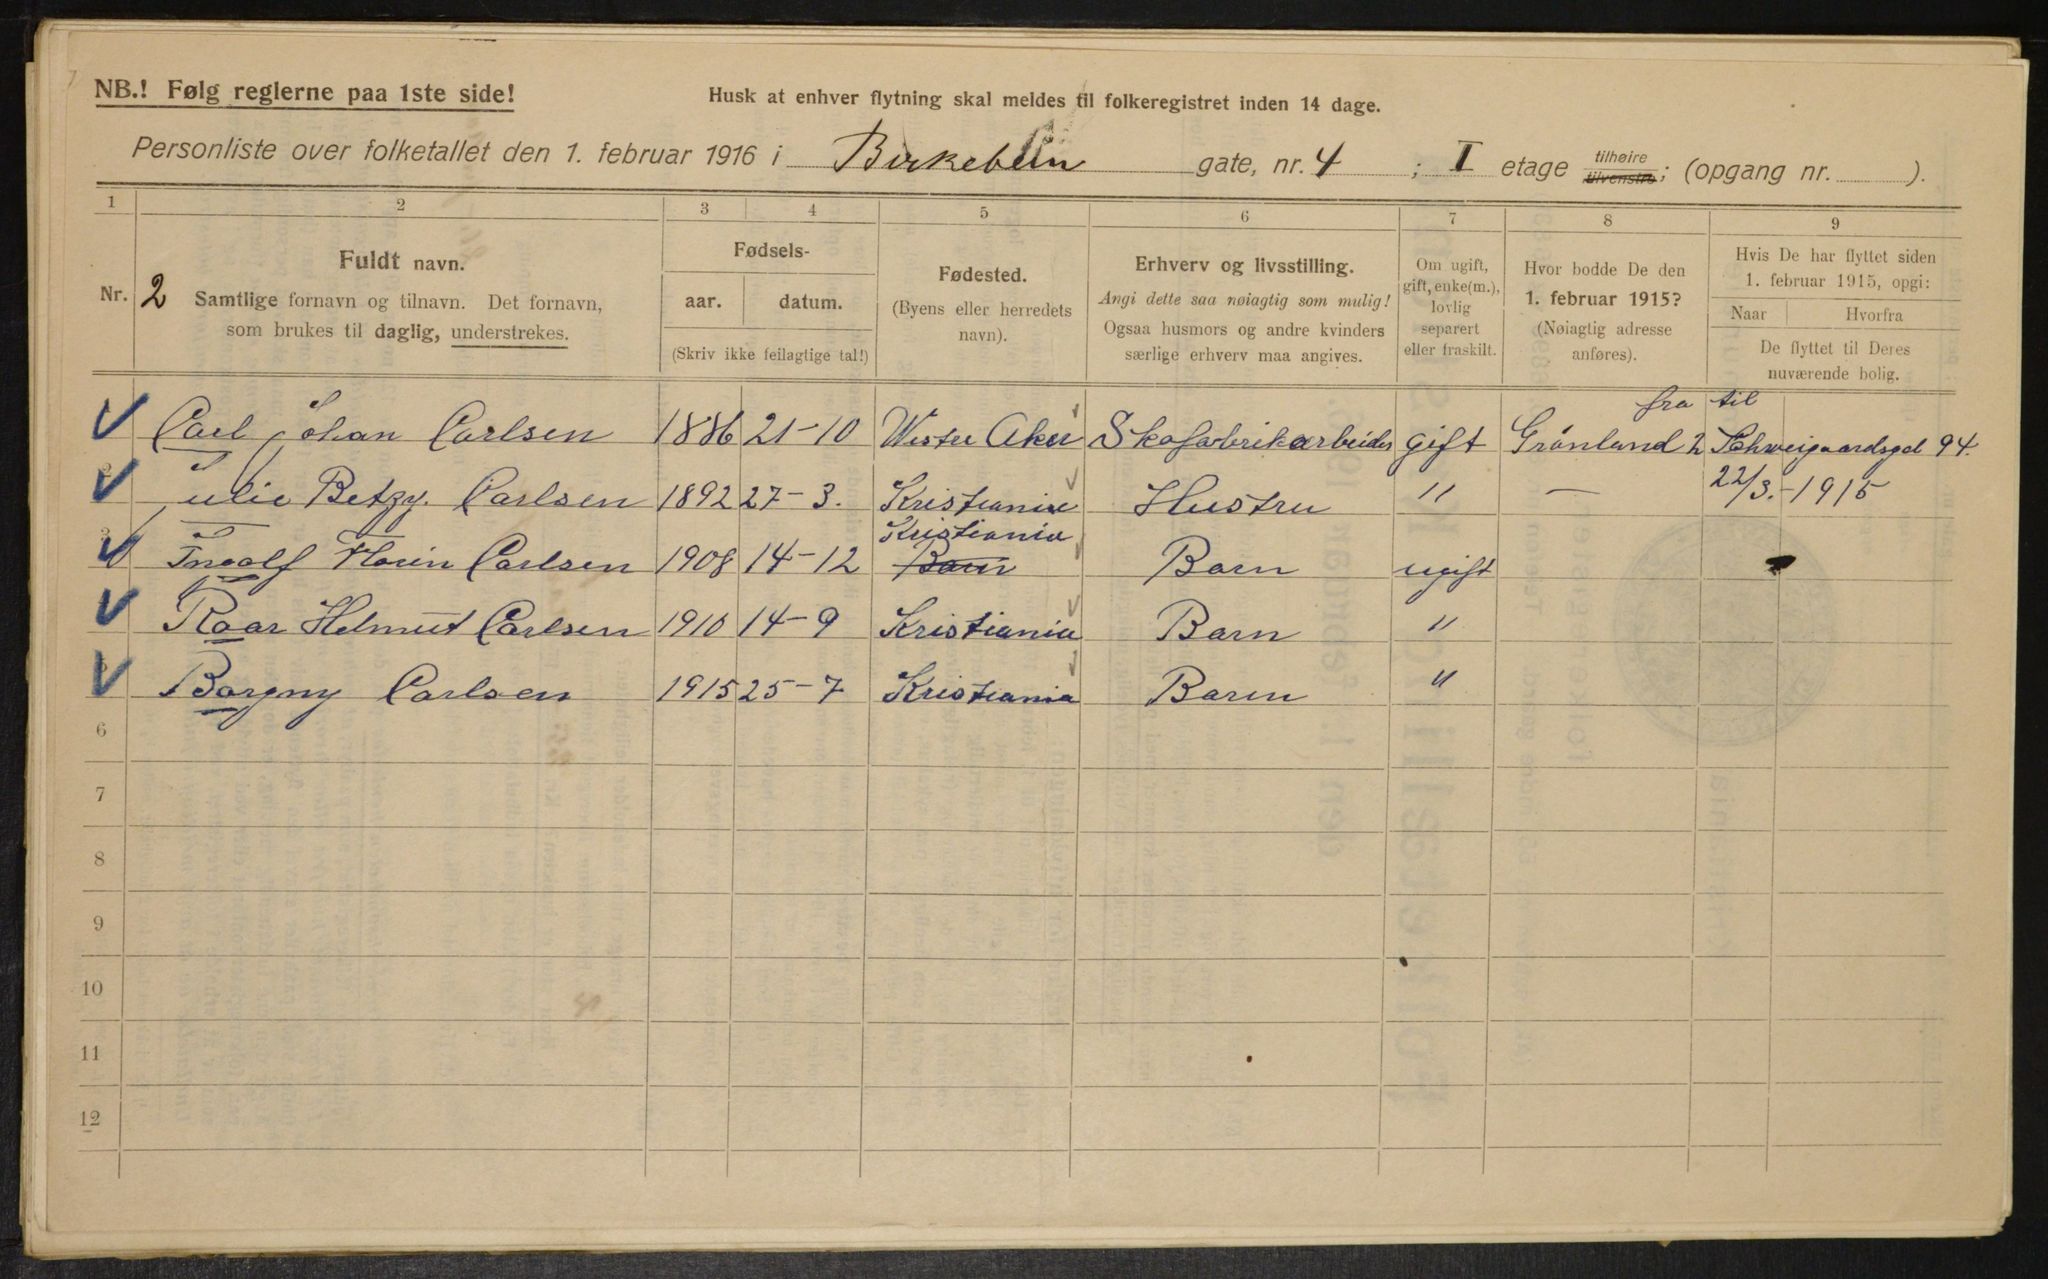 NB.! Følg reglerne paa 1ste side!
Husk at enhver flytning skal meldes til folkeregistret inden 14 dage.
Personliste over folketallet den 1. februar 1916 i Birkebein gate, nr. 4 ; I etage tilhøire tilvenstre; (opgang nr. ).
1 2 3 4 5 6 7 8 9
Nr. 2
Fuldt navn.
Samtlige fornavn og tilnavn. Det fornavn,
som brukes til daglig, understrekes.
Fødsels-
aar. datum.
(Skriv ikke feilagtige tal!)
Fødested.
(Byens eller herredets
navn).
Erhverv og livsstilling.
Angi dette saa nøiagtig som mulig!
Ogsaa husmors og andre kvinders
særlige erhverv maa angives.
Om ugift,
gift, enke(m.),
lovlig
separert
eller fraskilt.
Hvor bodde De den
1. februar 1915?
(Nøiagtig adresse
anføres).
Hvis De har flyttet siden
1. februar 1915, opgi:
Naar Hvorfra
De flyttet til Deres
nuværende bolig.
fra til
Carl Johan Carlsen 1886 21-10 Wester Aker Skofabrikarbeider gift Grønland 2 Schweigaardsgd 94.
Julie Betzy. Carlsen 1892 27-3. Kristiania Hustru " — 22/3.-1915
Kristiania
Ingolf Carlsen 1908 14-12 Barn Barn ugift
Roar Helmut Carlsen 1910 14-9 Kristiania Barn "
Borgny Carlsen 1915 25-7 Kristiania Barn "
6
7
8
9
10
11
12